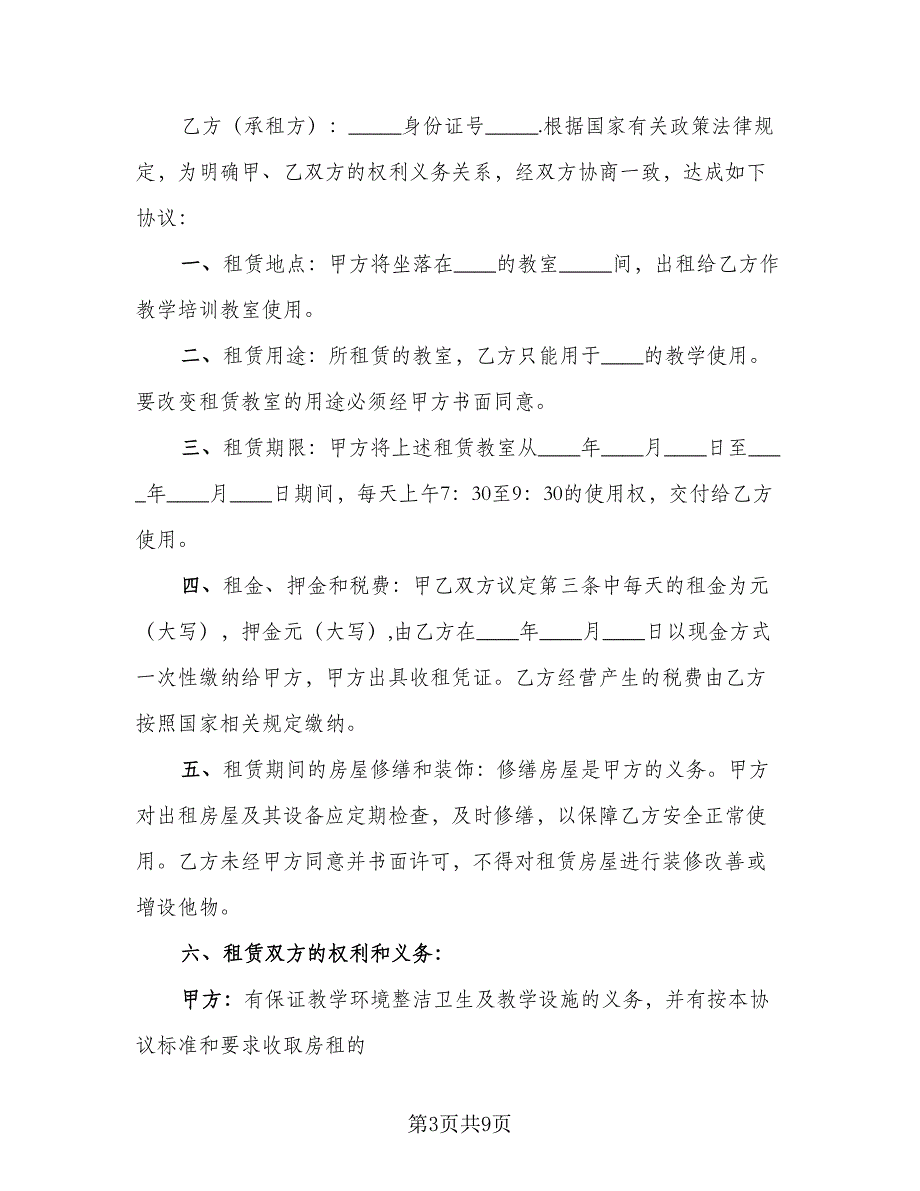 乙方（承租方）：_____身份证号_____.根据国家有关政策法律规
定，为明确甲、乙双方的权利义务关系，经双方协商一致，达成如下
协议：
一、租赁地点：甲方将坐落在____的教室_____间，出租给乙方作
教学培训教室使用。
二、租赁用途：所租赁的教室，乙方只能用于____的教学使用。
要改变租赁教室的用途必须经甲方书面同意。
三、租赁期限：甲方将上述租赁教室从____年____月____日至___
_年____月____日期间，每天上午7：30至9：30的使用权，交付给乙方
使用。
四、租金、押金和税费：甲乙双方议定第三条中每天的租金为元
（大写），押金元（大写）,由乙方在____年____月____日以现金方式
一次性缴纳给甲方，甲方出具收租凭证。乙方经营产生的税费由乙方
按照国家相关规定缴纳。
五、租赁期间的房屋修缮和装饰：修缮房屋是甲方的义务。甲方
对出租房屋及其设备应定期检查，及时修缮，以保障乙方安全正常使
用。乙方未经甲方同意并书面许可，不得对租赁房屋进行装修改善或
增设他物。
六、租赁双方的权利和义务：
甲方：有保证教学环境整洁卫生及教学设施的义务，并有按本协
议标准和要求收取房租的
第3页共9页